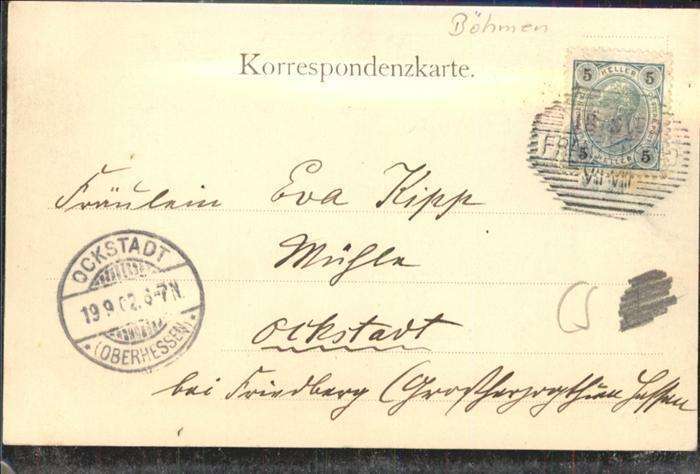 Böhmen
Korrespondenzkarte.
5 HELLER 5
5 HELLER 5
Fräulein Eva Kipp
Mühle
Ockstadt
bei Friedberg (Großherzogthum Hessen
OCKSTADT
19.9.02.6-7N.
* (OBERHESSEN) *